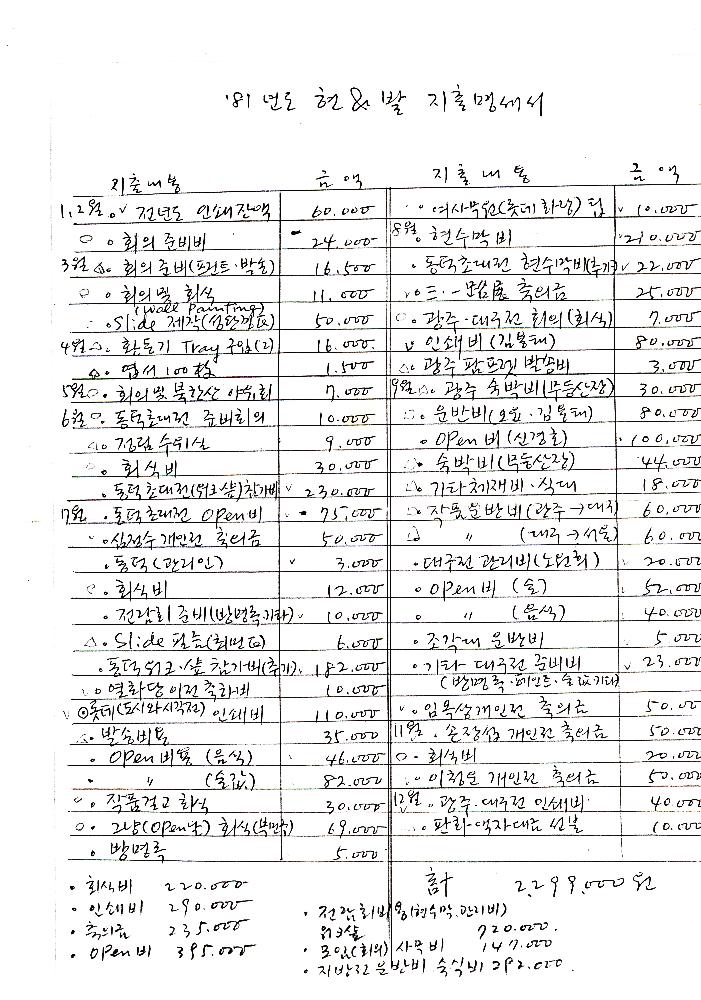 '81년도 현&발 지출명세서
지출내용 금액
1,2월 전년도 인쇄잔액 60.000
회의 준비비 24.000
3월 회의준비(프린트·발송) 16.500
회의 및 회식 11.000
(Wall Painting)
Slide 제작(성완경氏) 50.000
4월 환등기 Tray 구입(2) 16.000
엽서 100枚 1.500
5월 회의 및 북한산 야유회 7.000
6월 동덕초대전 준비회의 10.000
정림 수위실 9.000
회식비 30.000
동덕초대전(워크샾)참가비 230.000
7월 동덕초대전 Open비 75.000
심정수 개인전 축의금 50.000
동덕(관리인) 3.000
회식비 12.000
전람회 준비(방명록·기타) 10.000
Slide 필름(최민氏) 6.000
동덕워크·샾 참가비(추가) 182.000
열화당 이전 축하비 10.000
롯데(도시와시각전) 인쇄비 110.000
발송비용 35.000
Open비용 (음식) 46.000
〃 (술값) 82.000
작품걸고 회식 30.000
그날(Open날) 회식(부민주) 69.000
방명록 5.000
지출내용 금액
여사무원(롯데화랑) 팁 10.000
8월 현수막비 210.000
동덕초대전 현수막비(추가) 22.000
축의금 25.000
광주·대구전 회의(회식) 7.000
인쇄비 (김용태) 80.000
광주 팜프렛 발송비 3.000
9월 광주 숙박비(무등산장) 30.000
운반비(오윤·김용태) 80.000
Open비 (신경호) 100.000
숙박비(무등산장) 44.000
기타체재비·식대 18.000
작품운반비(광주→대구) 60.000
〃 (대구→서울) 60.000
대구전 관리비(노원희) 20.000
Open비 (술) 52.000
〃 (음식) 40.000
조각대 운반비 5.000
기타 대구전 준비비 23.000
(방명록·페인트·술값 기타)
임옥상개인전 축의금 50.00
11월 손장섭 개인전 축의금 50.00
회식비 20.00
이청운 개인전 축의금 50.00
12월 광주·대구전 인쇄비 40.00
판화·액자대금 선불 10.00
計 2,299,000원
회식비 220.000
인쇄비 290.000
축의금 235.000
Open비 395.000
전람회비용(현수막·관리비)
워크샾 720.000
모임(회의) 사무비 147.000
지방전 운반비 숙식비 292.000.